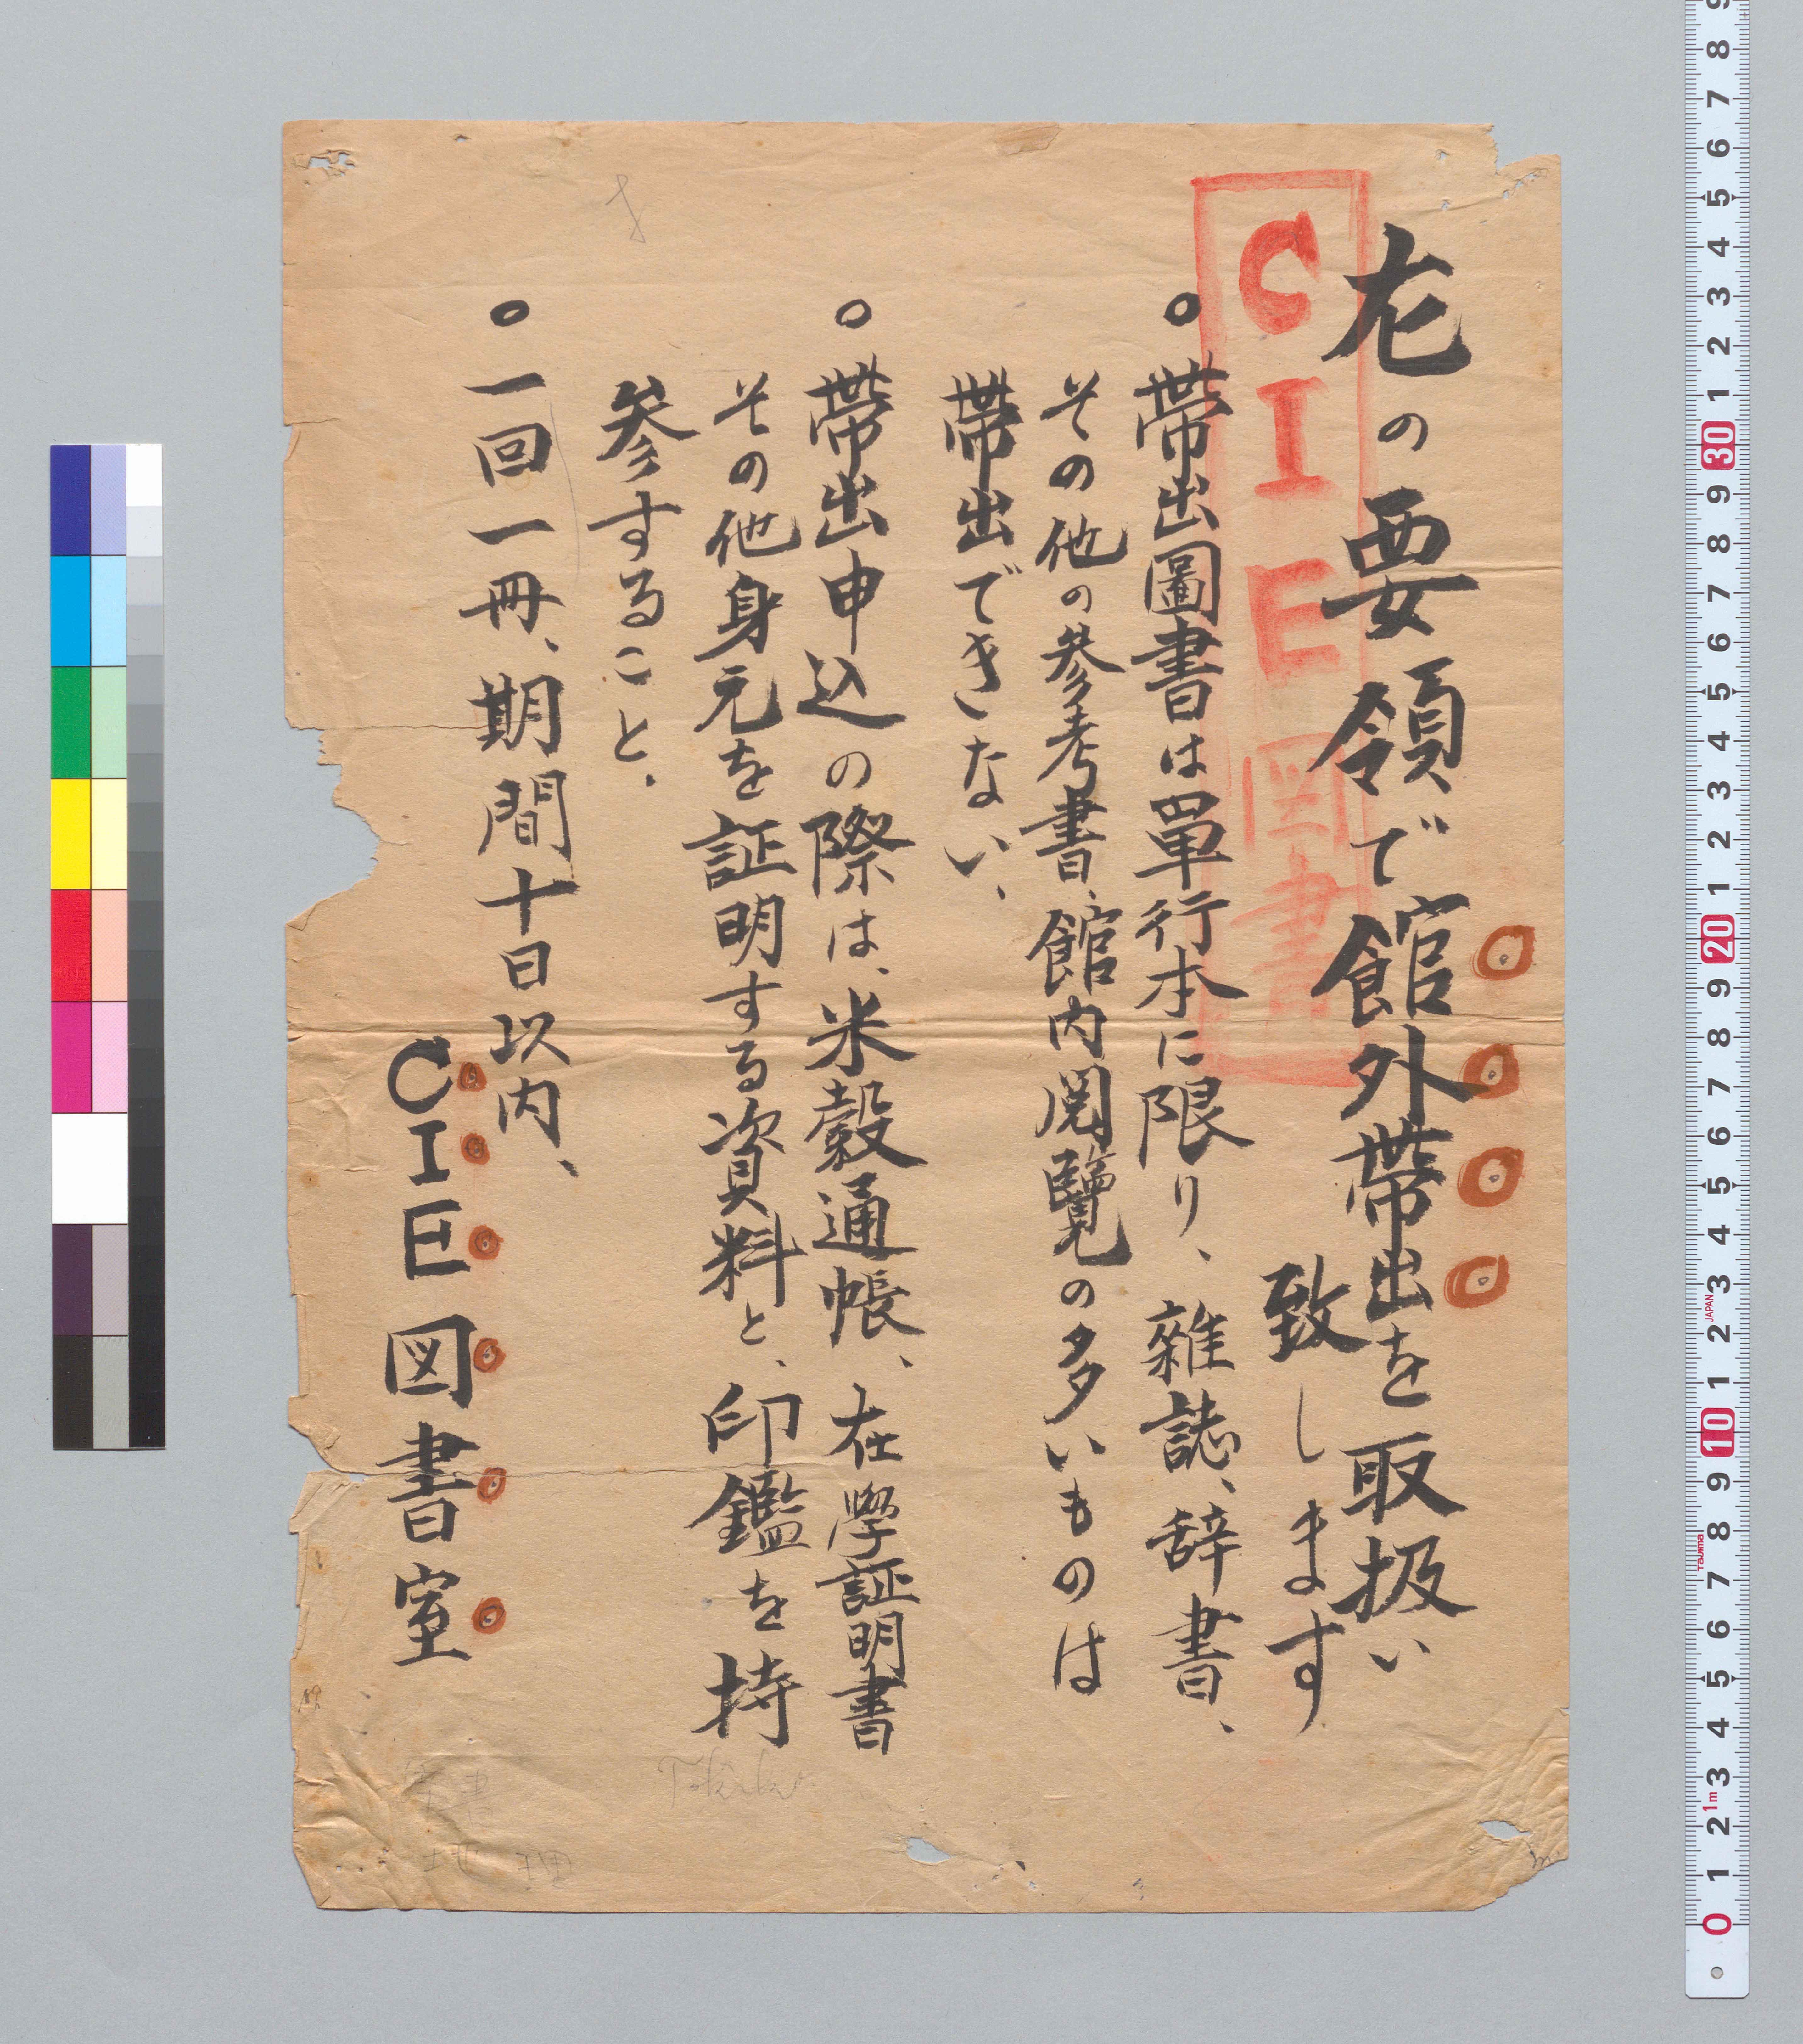 左の要領で館外帯出を取扱い
致します
CIE図書
○帯出圖書は單行本に限り、雜誌、辞書、
その他の参考書、館内閲覽の多いものは
帯出できない、
○帯出申込の際は、米穀通帳、在學証明書
その他身元を証明する資料と、印鑑を持
参すること、
○一回一冊、期間十日以内、
CIE図書室